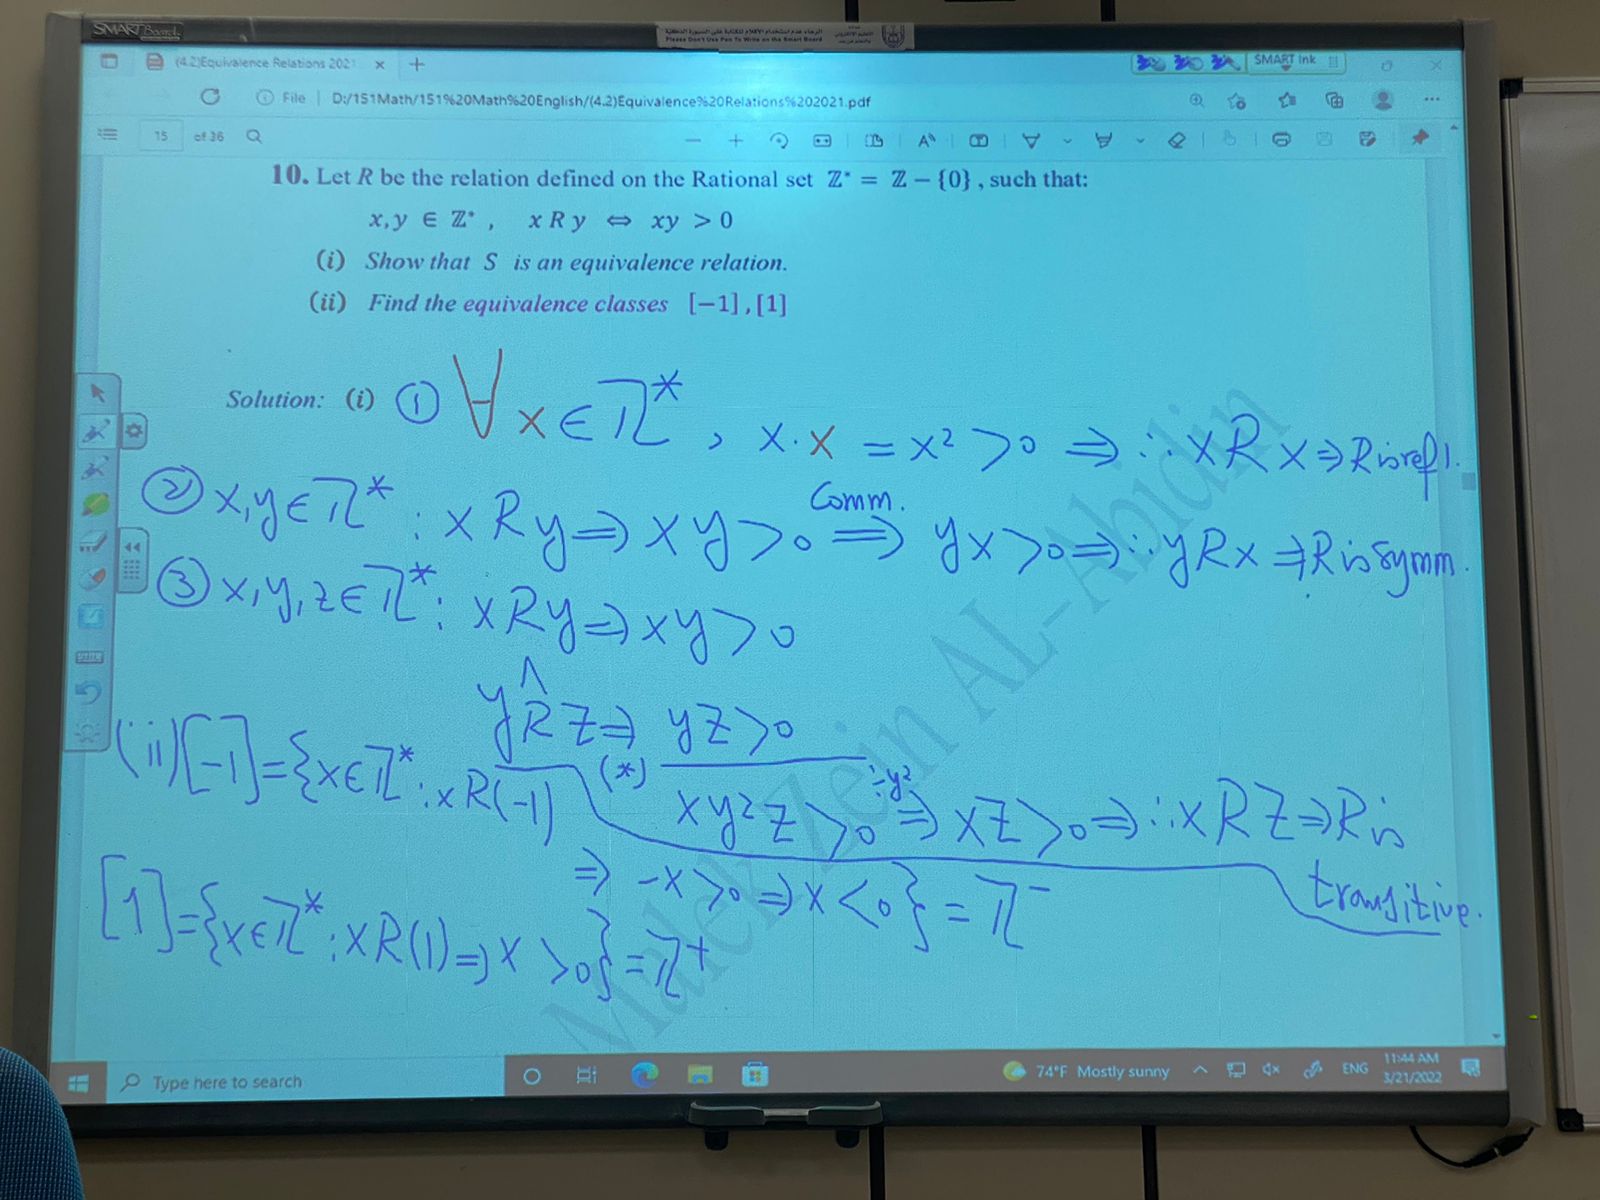 SMART Board
الرجاء عدم استخدام الأقلام للكتابة على السبورة الذكية
Please Don't Use Pen To Write on the Smart Board
(4.2)Equivalence Relations 2021 × +
SMART Ink
File | D:/151Math/151%20Math%20English/(4.2)Equivalence%20Relations%202021.pdf
15 of 36
10. Let R be the relation defined on the Rational set ℤ* = ℤ − {0} , such that:
x, y ∈ ℤ* , x R y ⇔ xy > 0
(i) Show that S is an equivalence relation.
(ii) Find the equivalence classes [−1] , [1]
Solution: (i) ① ∀ x ∈ ℤ* , x·x = x² > 0 ⇒ ∴ x R x ⇒ R is refl.
② x, y ∈ ℤ* : x R y ⇒ xy > 0 Comm. ⇒ yx > 0 ⇒ ∴ y R x ⇒ R is symm.
③ x, y, z ∈ ℤ* : x R y ⇒ xy > 0
∧
y R z ⇒ yz > 0
(*) xy²z > 0 ÷y² ⇒ xz > 0 ⇒ ∴ x R z ⇒ R is transitive.
(ii) [−1] = {x ∈ ℤ* : x R (−1)
⇒ −x > 0 ⇒ x < 0 } = ℤ⁻
[1] = {x ∈ ℤ* : x R (1) ⇒ x > 0} = ℤ⁺
Malek Zein AL-Abidin
Type here to search
74°F Mostly sunny
ENG
11:44 AM
3/21/2022